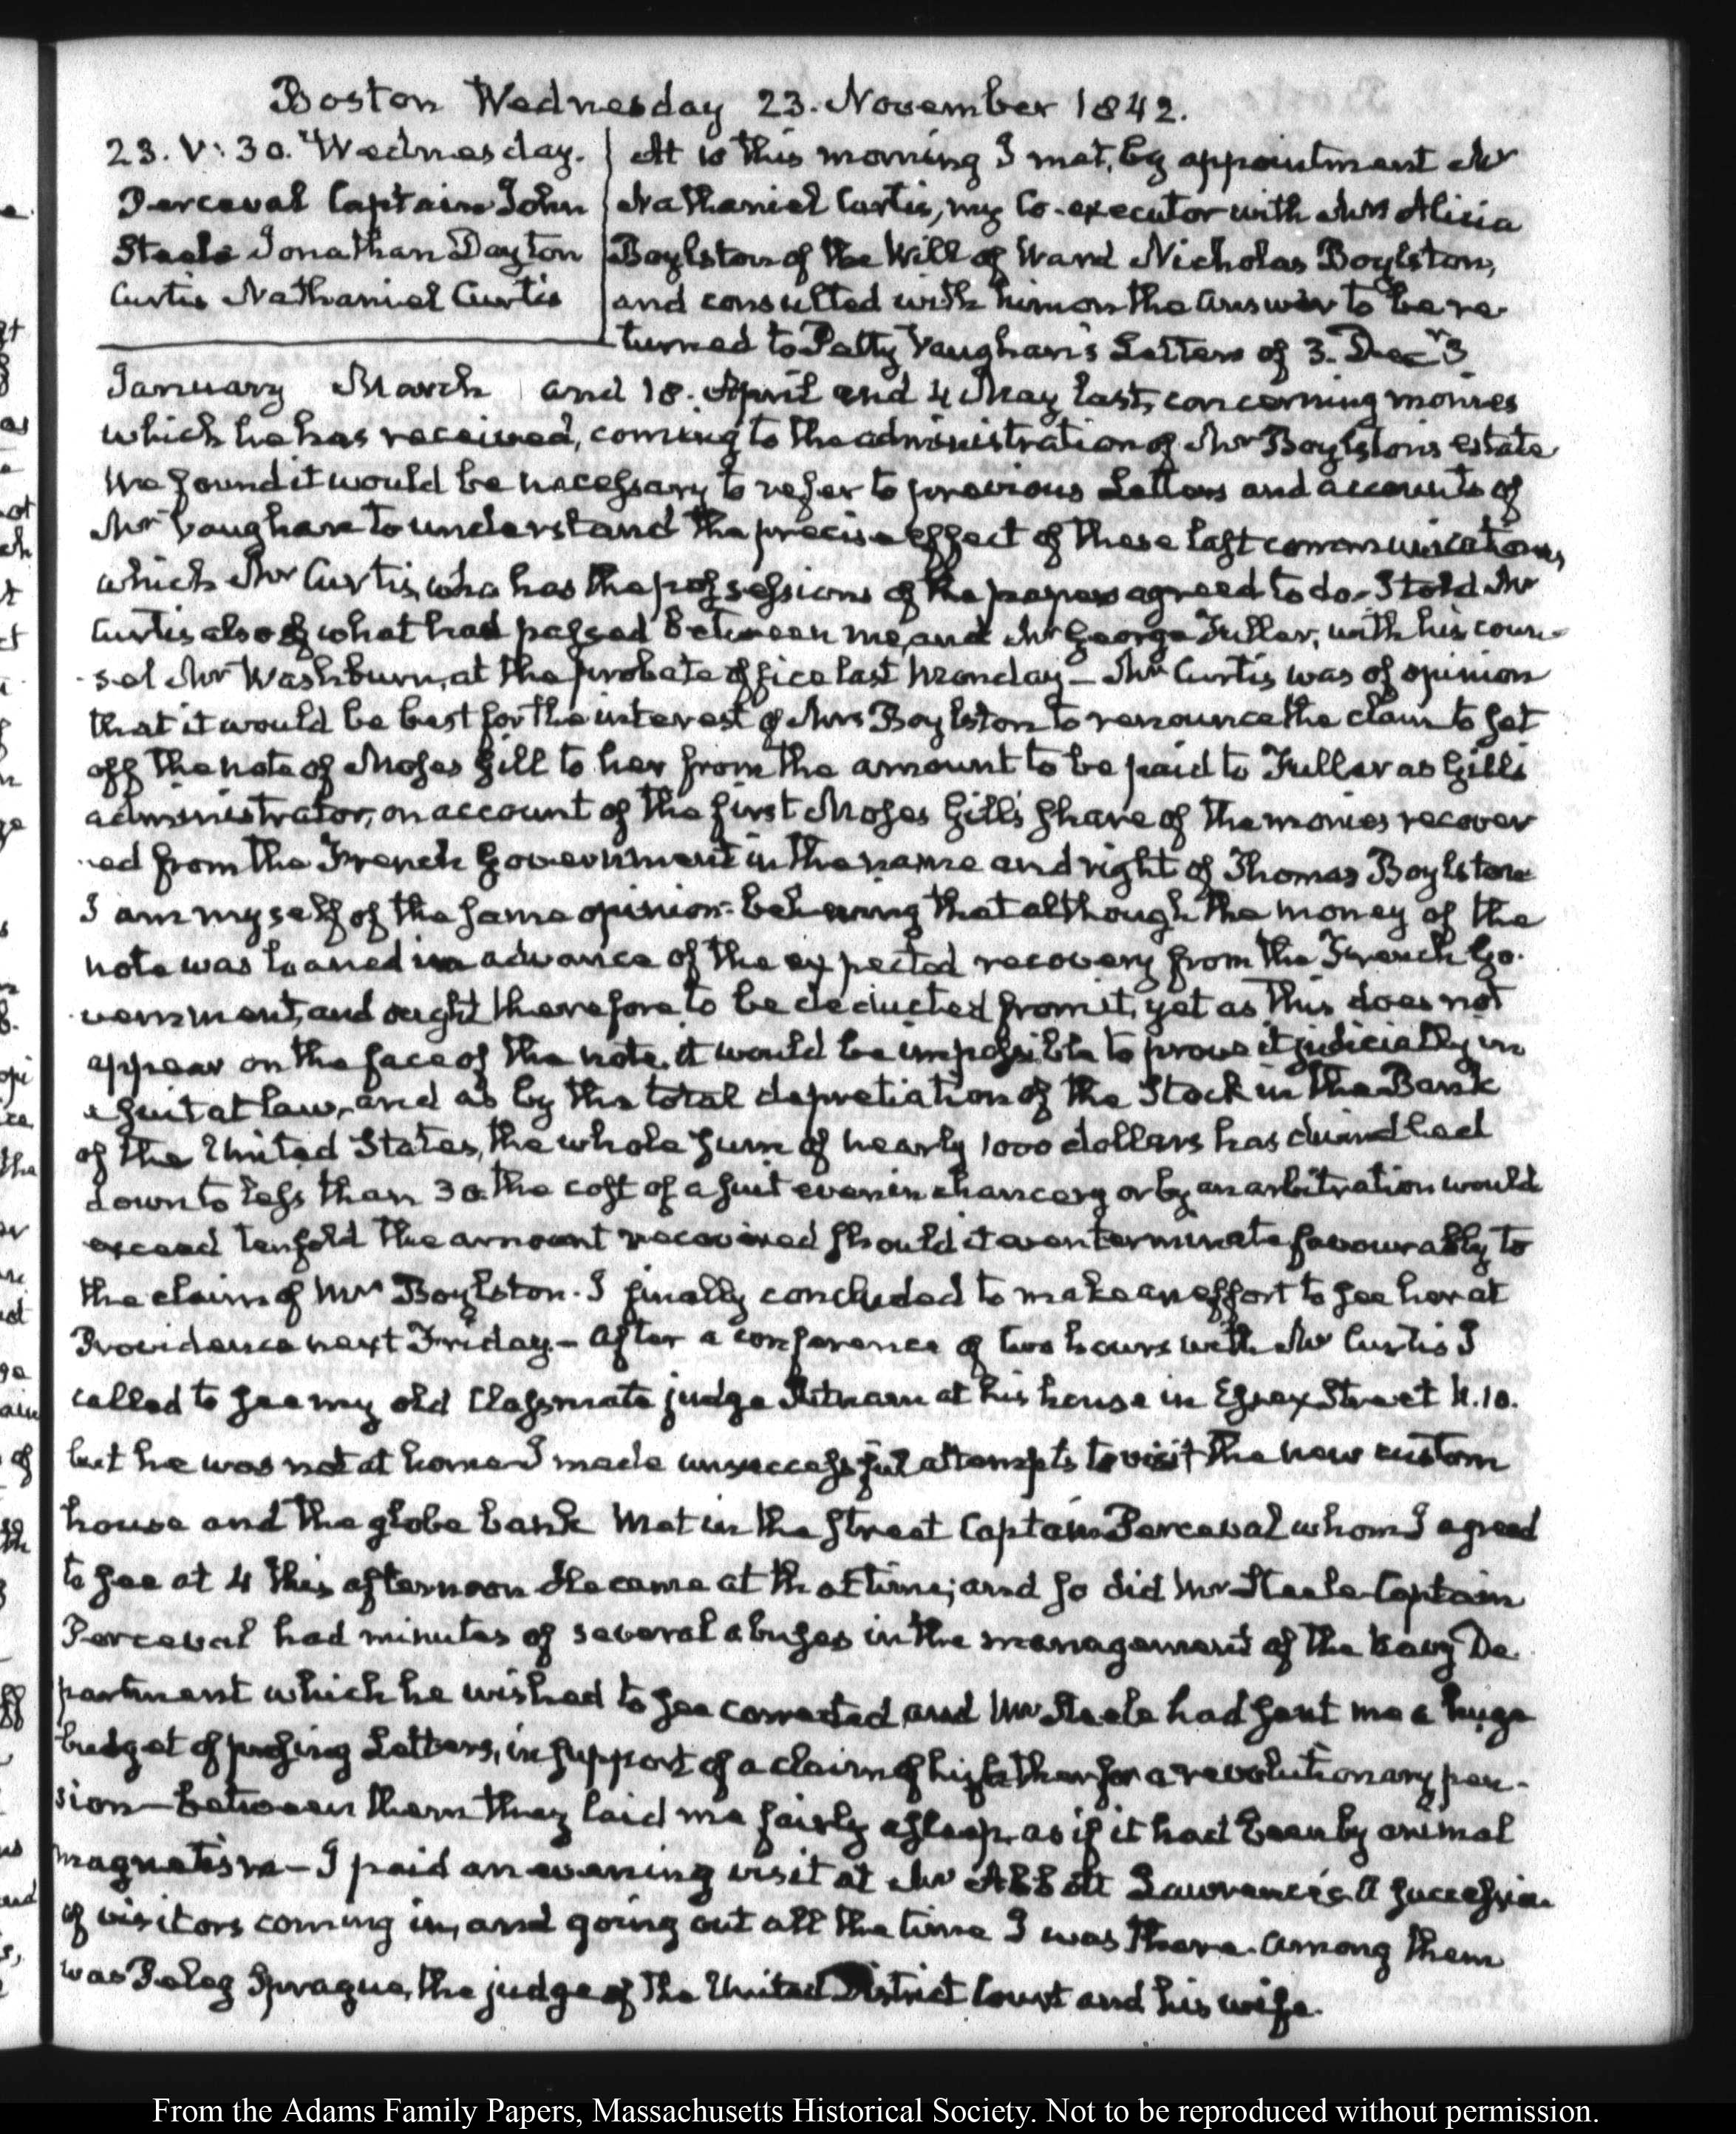 Boston Wednesday 23. November 1842.
23. V: 30. Wednesday.
Perceval Captain John
Steele Jonathan Dayton
Curtis Nathaniel Curtis
At is this morning I met, by appointment Mr
Nathaniel Curtis, my Co-executor with Mrs Alicia
Boylston of the Will of Ward Nicholas Boylston,
and consulted with him on the answer to be re-
turned to Petty Vaughan's Letters of 3. Decr 3
January March and 18. April and 4 May last, concerning monies
which he has received, coming to the administration of Mr Boylston's estate
We found it would be necessary to refer to previous Letters and accounts of
Mr Vaughan to understand the precise effect of these last communications,
which Mr Curtis, who has the possessions of the papers agreed to do. I told Mr
Curtis also of what had passed between me, and Mr George Fuller, with his coun-
sel Mr Washburn, at the probate office last Monday — Mr Curtis was of opinion
that it would be best for the interest of Mrs Boylston to renounce the claim to set
off the note of Moses Gill to her from the amount to be paid to Fuller as Gill's
administrator, on account of the first Moses Gill's share of the monies recover
ed from the French Government in the name and right of Thomas Boylston
I am myself of the same opinion - believing that although the money of the
note was loaned in advance of the expected recovery from the French Go-
vernment, and ought therefore to be deducted from it, yet as this does not
appear on the face of the note, it would be impossible to prove it judicially in
a suit at law, and as by the total depretiation of the Stock in the Bank
of the United States, the whole sum of nearly 1000 dollars has dwindled
down to less than 30. the cost of a suit even in chancery or by an arbitration would
exceed tenfold the amount recovered should it even terminate favourably to
the claim of Mrs Boylston. I finally concluded to make an effort to see her at
Providence next Friday. — After a conference of two hours with Mr Curtis I
called to see my old Classmate judge Putnam at his house in Essex Street N. 10.
but he was not at home I made unsuccessful attempts to visit the new custom
house and the globe bank Met in the street Captain Perceval whom I agreed
to see at 4 this afternoon He came at that time; and so did Mr Steele Captain
Perceval had minutes of several abuses in the management of the Navy De-
partment which he wished to see corrected, and Mr Steele had sent me a huge
budget of prosing Letters, in support of a claim of his father for a revolutionary pen-
sion — between them they laid me fairly asleep, as if it had been by animal
magnetism — I paid an evening visit at Mr Abbott Lawrence's. A succession
of visitors coming in, and going out all the time I was there. Among them
was Peleg Sprague, the judge of the United District Court and his wife.
From the Adams Family Papers, Massachusetts Historical Society. Not to be reproduced without permission.